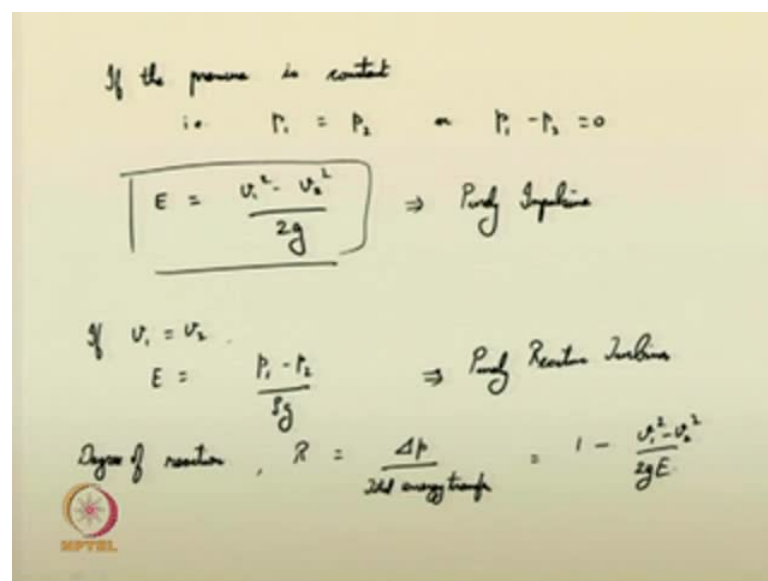 If the pressure is constant
i.e. P₁ = P₂ or P₁ - P₂ = 0
E = (v₁² - v₂²) / 2g ⇒ Purely Impulsive
If v₁ = v₂.
E = (P₁ - P₂) / ρg ⇒ Purely Reaction Turbine
Degree of reaction, R = Δp / Total energy transfer = 1 - (v₁² - v₂²) / 2gE.
NPTEL